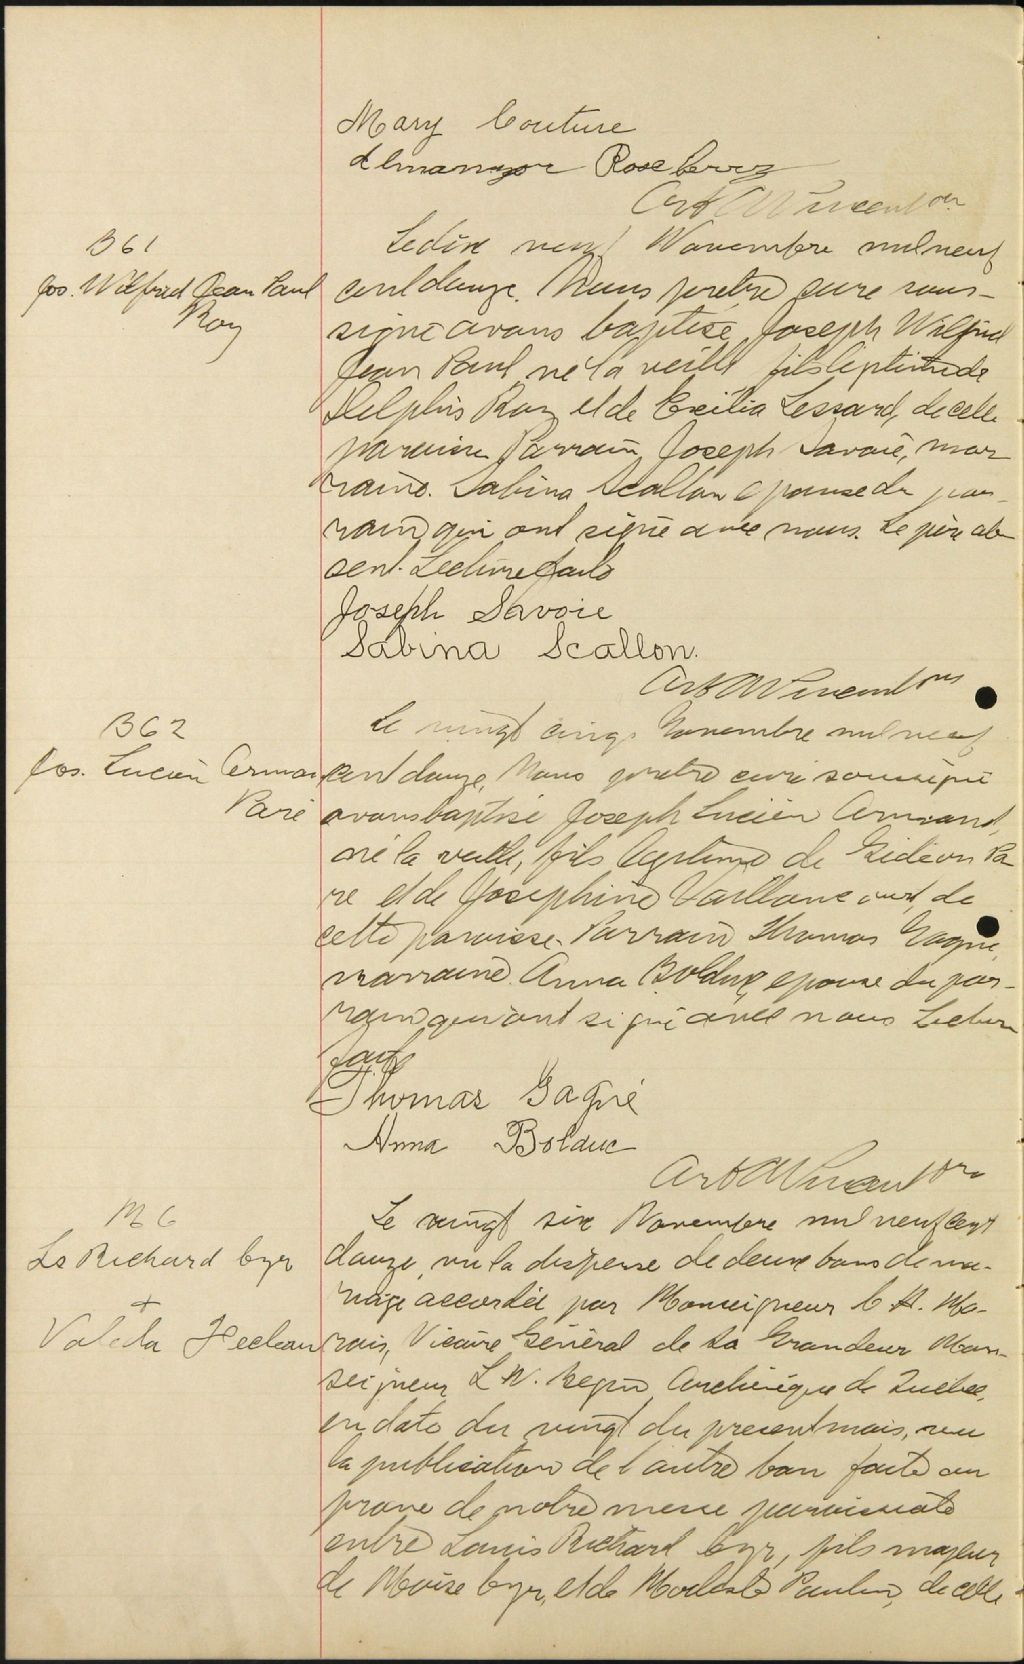 Mary Couture
Almanzor Rose
Art Vincent ptre
B61
Jos. Wilfrid Jean Paul
Roy
Le dix neuf Novembre mil neuf
cent douze, Nous pretre curé sous-
signé avons baptisé Joseph Wilfrid
Jean Paul né la veille fils légitime de
Delphis Roy et de Exilia Lessard, de cette
paroisse Parrain Joseph Savoie, mar
raine. Sabina Scallon epouse du par-
rain, qui ont signé avec nous. Le père ab-
sent. Lecture faite
Joseph Savoie
Sabina Scallon.
Art Vincent ptre
B62
Jos. Lucien Arman
Paré
Le vingt cinq Novembre mil neuf
cent douze, Nous pretre curé soussigné
avons baptisé Joseph Lucien Armand,
né la veille, fils legitime de Gédéon Pa
ré et de Josephine Vaillancourt, de
cette paroisse. Parrain Thomas Gagné,
marraine. Anna Bolduc, epouse du par-
rain qui ont signé avec nous Lecture
faite
Thomas Gagné
Anna Bolduc
Art Vincent ptre
M6
Ls Richard Cyr
+
Valeda
Le vingt six Novembre mil neuf cent
douze, vu la dispense de deux bans de ma-
riage accordée par Monseigneur C A. Ma-
rois, Vicaire Général de Sa Grandeur Mon-
seigneur L N. Begin Archevêque de Quebec,
en date du vingt du present mois, vu
la publication de l'autre ban faite au
prone de notre messe paroissiale
entre Louis Richard Cyr, fils majeur
de Moïse Cyr, et de Modeste Paulin, de cette